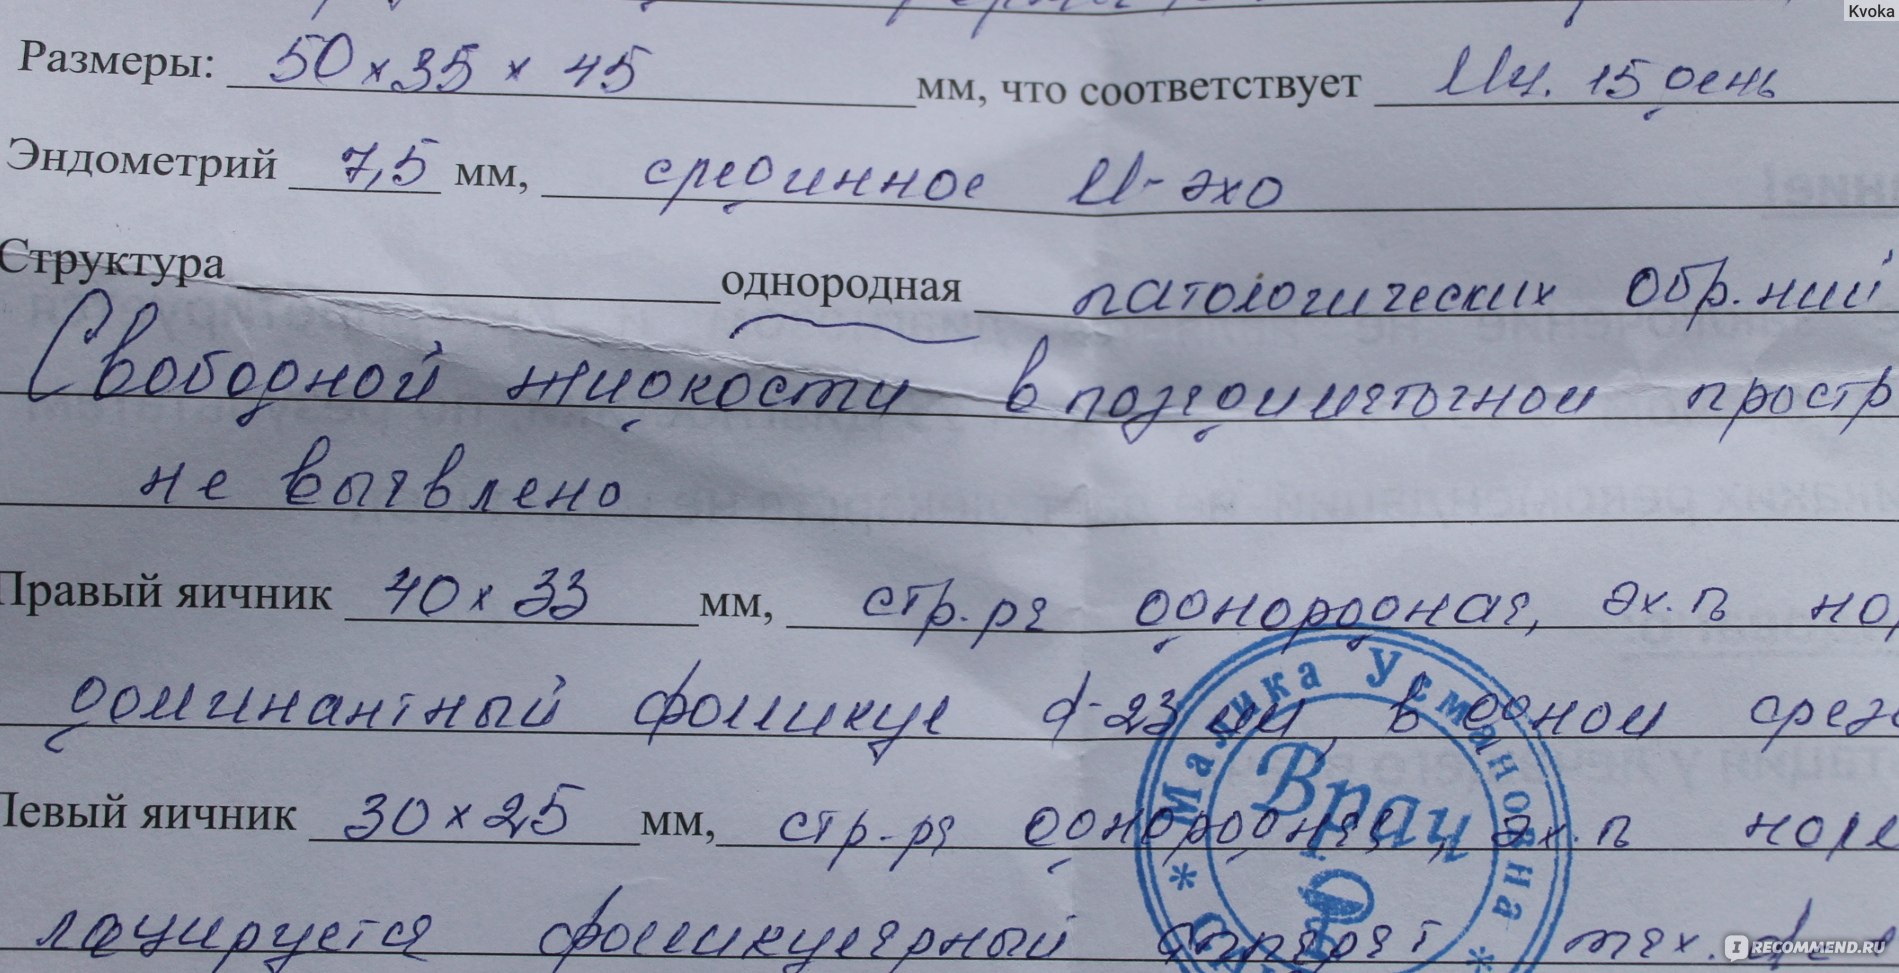 Kvoka
Размеры: 50 х 35 х 45 мм, что соответствует Мц. 15 день
Эндометрий 7,5 мм, срединное М-эхо
Структура однородная патологических обр.ний
Свободной жидкости в позадиматочном простр
не выявлено
Правый яичник 40 х 33 мм, стр.ря однородная, эх.п но
доминантный фолликул d-23 мм, в одном срез
Левый яичник 30 х 25 мм, стр-ря однородная, эх.п норм
лоцируется фолликулярный аппарат
* Малика Усмановна *
Врач
RECOMMEND.RU